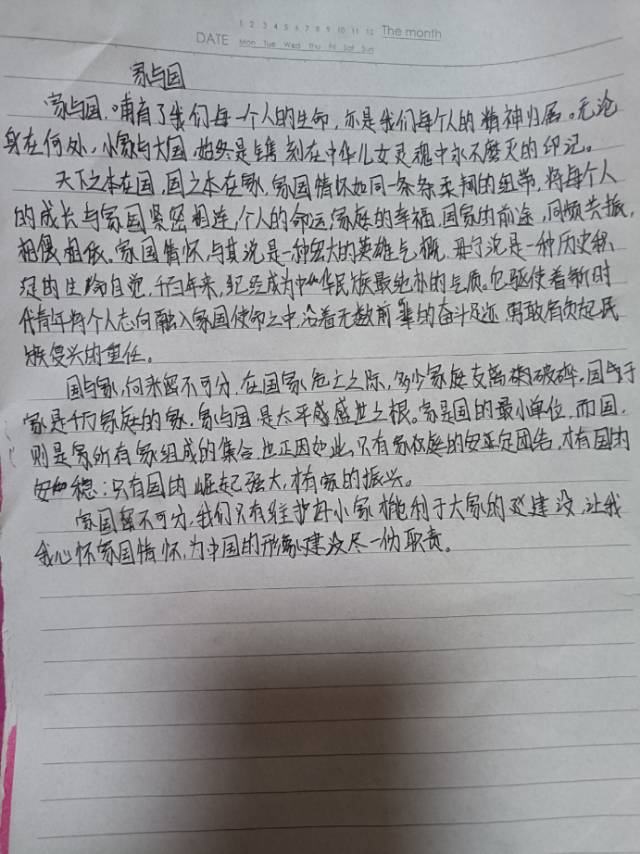 1 2 3 4 5 6 7 8 9 10 11 12 The month
DATE Mon Tue Wed Thu Fri Sat Sun
家与国
家与国,哺育了我们每一个人的生命,亦是我们每个人的精神归属。无论
身在何处,小家与大国,始终是镌刻在中华儿女灵魂中永不磨灭的印记。
天下之本在国,国之本在家,家国情怀如同一条条柔韧的纽带,将每个人
的成长与家国紧密相连,个人的命运,家庭的幸福,国家的前途,同频共振,
相偎相依。家国情怀,与其说是一种宏大的英雄气概,毋宁说是一种历史积
淀的生命自觉,千百年来,已经成为中华民族最纯朴的气质。它驱使着新时
代青年将个人志向融入家国使命之中,沿着无数前辈的奋斗足迹,勇敢肩负起民
族复兴的重任。
国与家,向来密不可分,在国家危亡之际,多少家庭支离破碎。国
家是千万家庭的家,家与国是太平盛世之根。家是国的最小单位,而国,
则是家所有家组成的集合,也正因如此,只有家庭的安定团结,才有国的
安稳;只有国的崛起强大,才有家的振兴。
家国密不可分,我们只有维护好小家才能利于大家的建设,让我
我心怀家国情怀,为中国的形象建设尽一份职责。